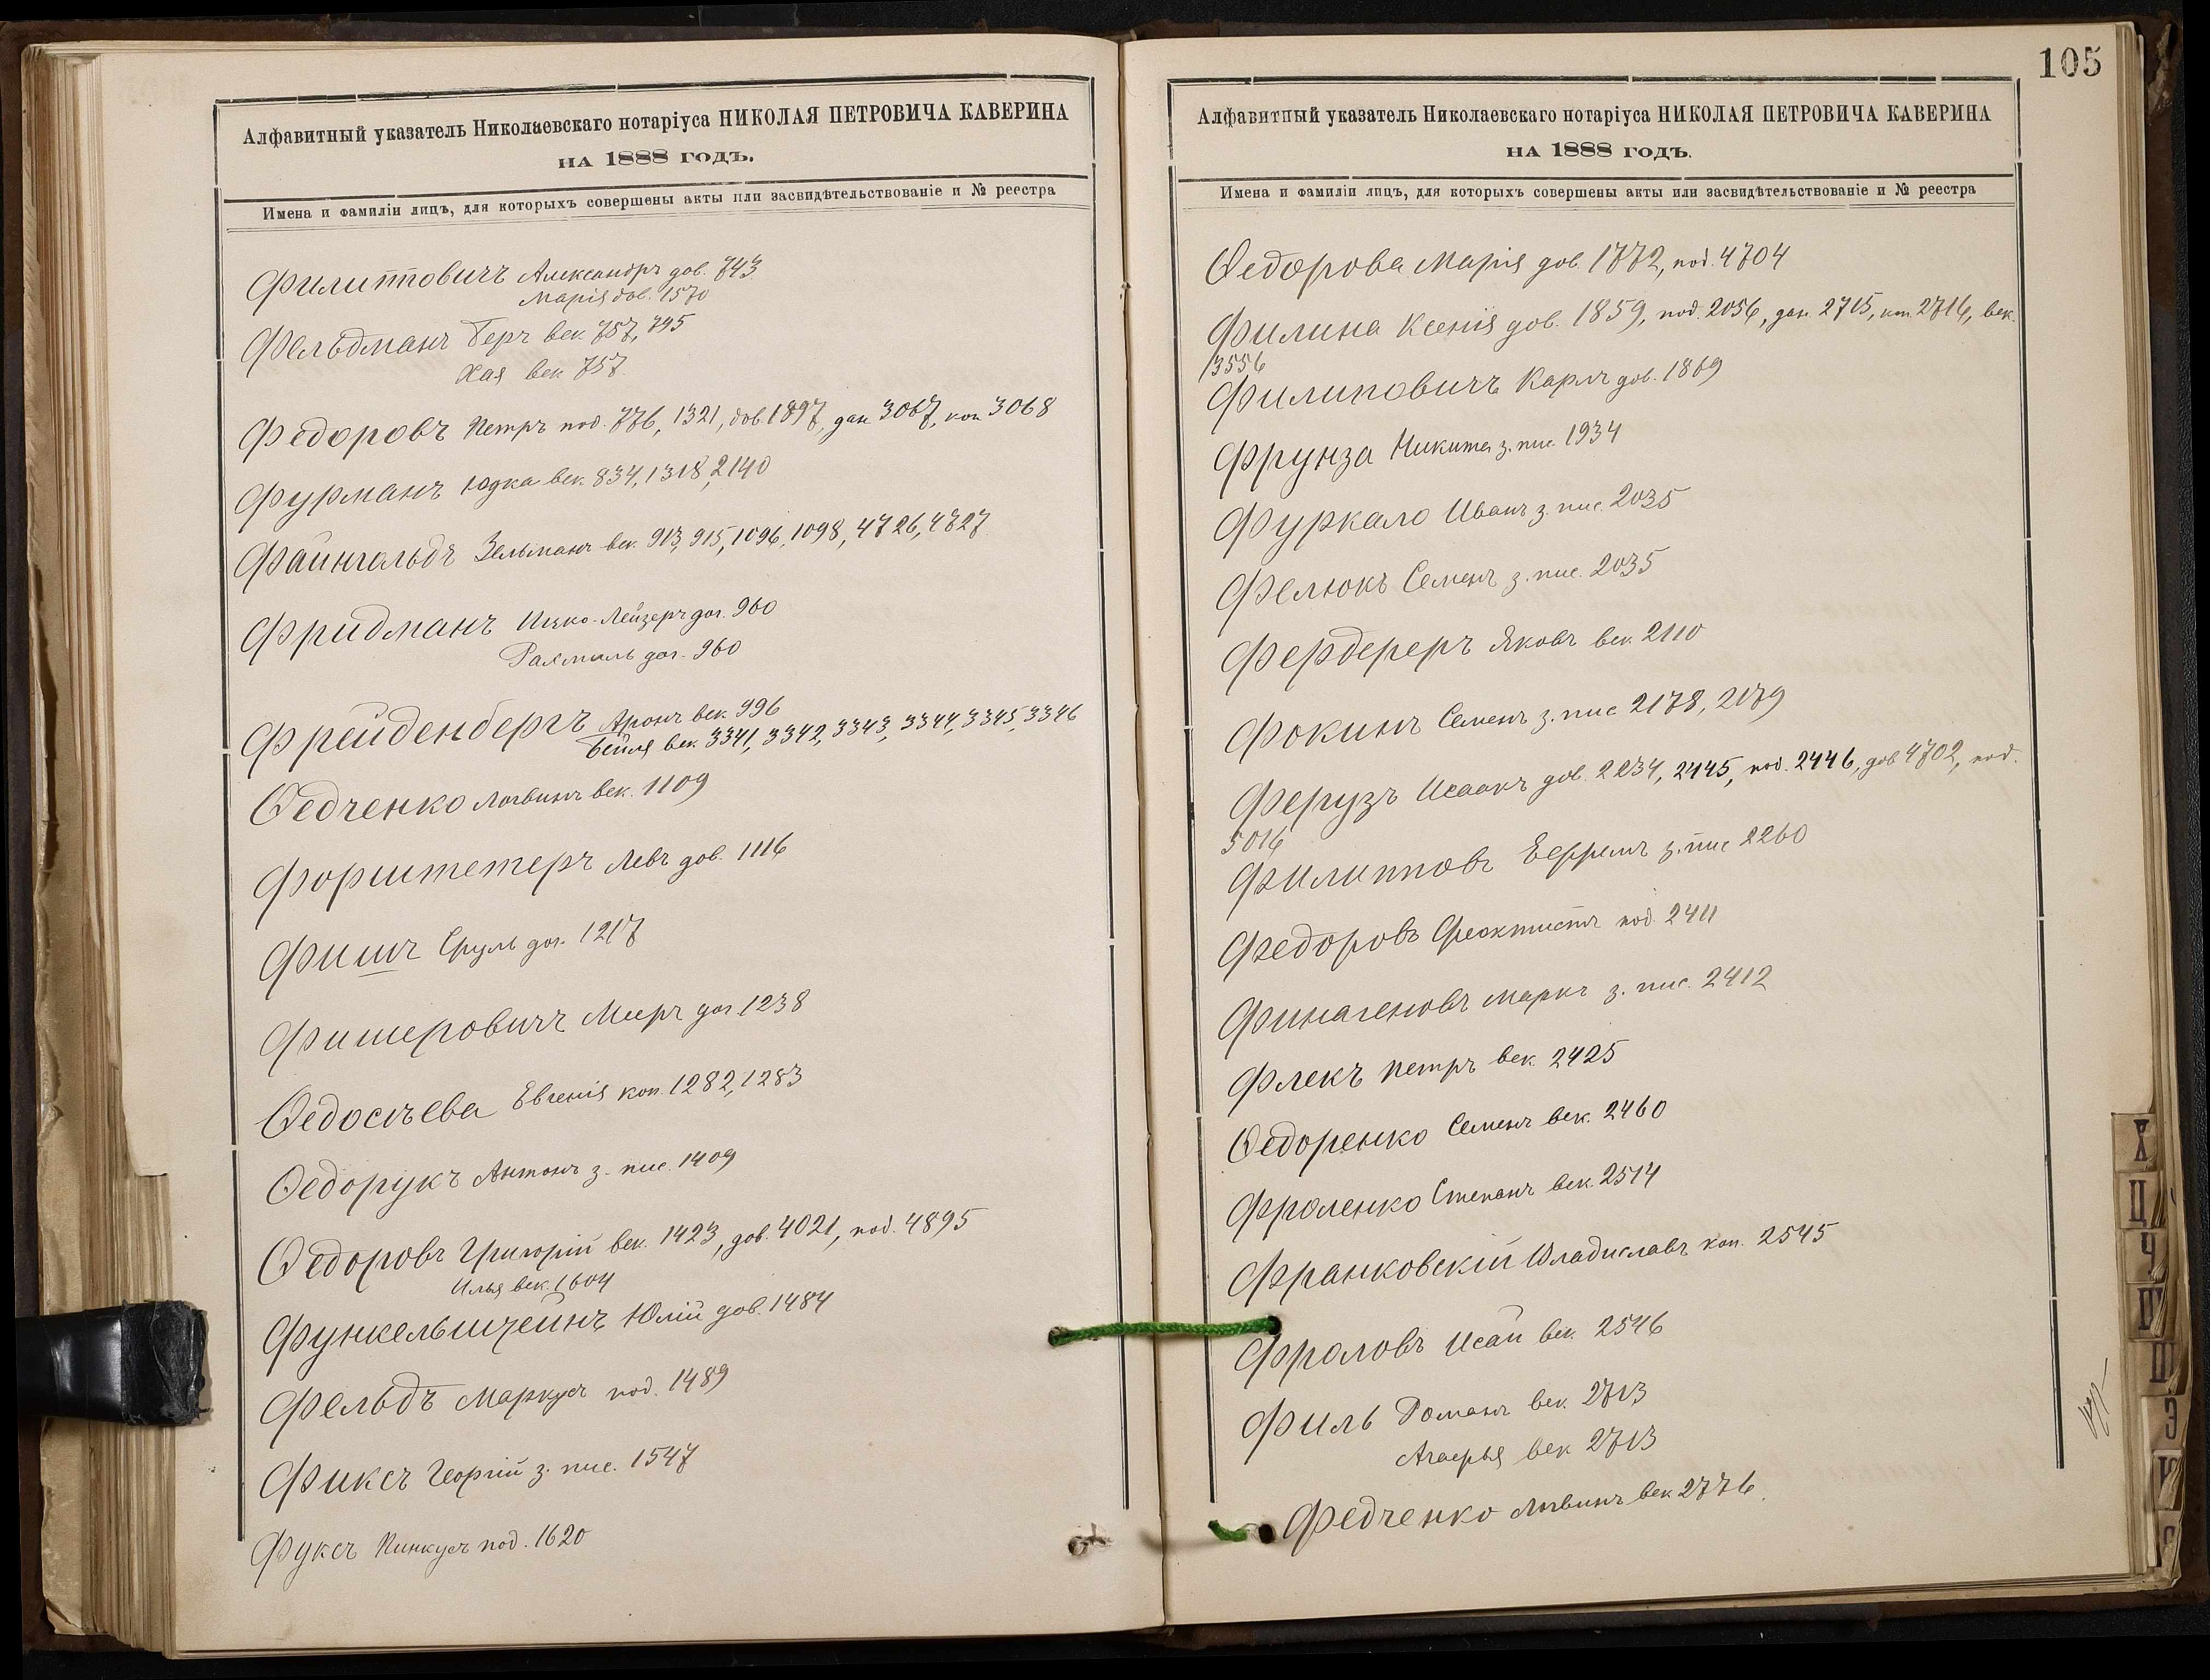 Алфавитный указатель Николаевскаго нотаріуса НИКОЛАЯ ПЕТРОВИЧА КАВЕРИНА
НА 1888 ГОДЪ.
Имена и фамиліи лицъ, для которыхъ совершены акты или засвидѣтельствованіе и № реестра
Филипповичъ Александръ дов. 743
Марія дов. 1570
Фельдманъ Беръ век. 757, 795
Хая век. 757
Федоровъ Петръ под. 776, 1321, дов. 1897, дан. 3067, коп. 3068
Фурманъ Юдка век. 834, 1318, 2140
Файнгольдъ Зельманъ век. 913, 915, 1096, 1098, 4726, 4727
Фридманъ Ицко-Лейзеръ дог. 960
Рахмиль дог. 960
Фрейденбергъ Аронъ век. 996
Бейля век. 3341, 3342, 3343, 3344, 3345, 3346
Ѳедченко Логвинъ век. 1109
Форштетеръ Левъ дов. 1116
Фишъ Сруль дог. 1217
Фишеровичъ Мееръ дог. 1238
Ѳедосѣева Евгенія коп. 1282, 1283
Ѳедорукъ Антонъ з. пис. 1409
Ѳедоровъ Григорій век. 1423, дов. 4021, под. 4895
Илья век. 1604
Функельштейнъ Юлій дов. 1484
Фельдъ Маркусъ под. 1489
Фиксъ Георгій з. пис. 1547
Фуксъ Пинкусъ под. 1620
105
Алфавитный указатель Николаевскаго нотаріуса НИКОЛАЯ ПЕТРОВИЧА КАВЕРИНА
НА 1888 ГОДЪ.
Имена и фамиліи лицъ, для которыхъ совершены акты или засвидѣтельствованіе и № реестра
Ѳедорова Марія дов. 1772, под. 4704
Филина Ксенія дов. 1859, под. 2056, дан. 2715, коп. 2716, век.
3556
Филиповичъ Карлъ дов. 1869
Фрунза Никита з. пис. 1934
Фуркало Иванъ з. пис. 2035
Фелюкъ Семенъ з. пис. 2035
Фердереръ Яковъ век. 2110
Фокинъ Семенъ з. пис. 2178, 2179
Ферузъ Исаакъ дов. 2234, 2445, под. 2446, дов. 4702, под.
5016
Филипповъ Ефремъ з. пис. 2260
Федоровъ Феоктистъ под. 2411
Финагеновъ Маркъ з. пис. 2412
Флекъ Петръ век. 2425
Ѳедоренко Семенъ век. 2460
Фроленко Степанъ век. 2514
Франковскій Владиславъ коп. 2545
Фроловъ Исай век. 2546
Филь Романъ век. 2713
Агафья век. 2713
Федченко Логвинъ век. 2776.
Х
Ц
Ч
Э